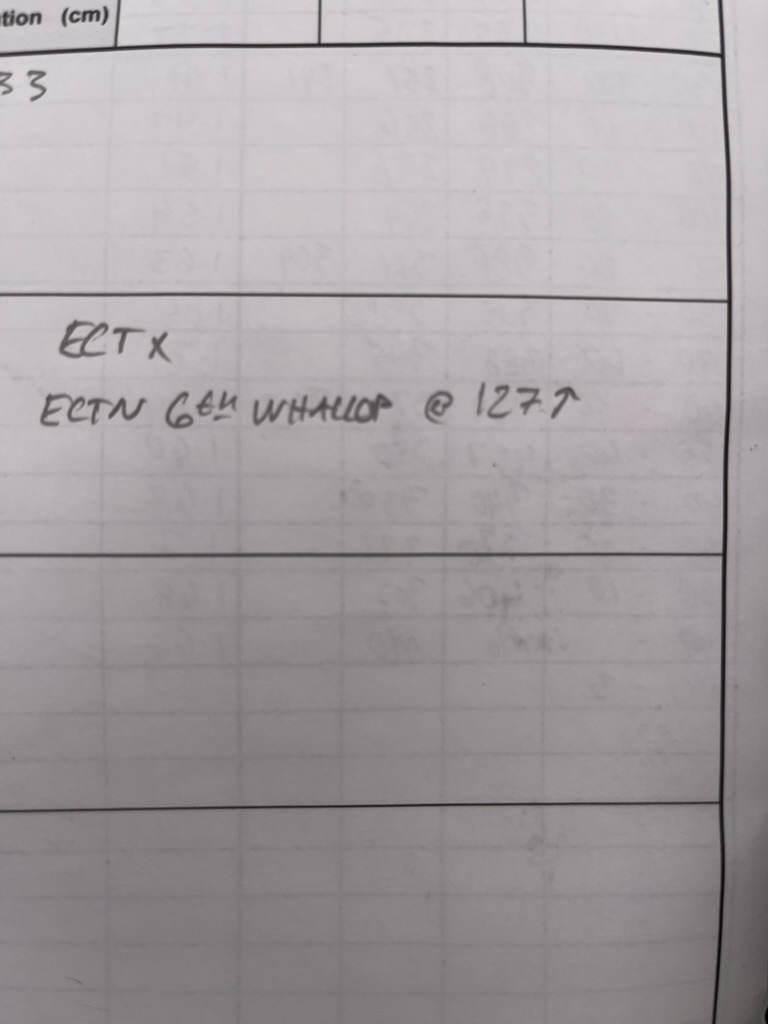 tion (cm)
33
ECTX
ECTN 6th WHALLOP @ 127↑